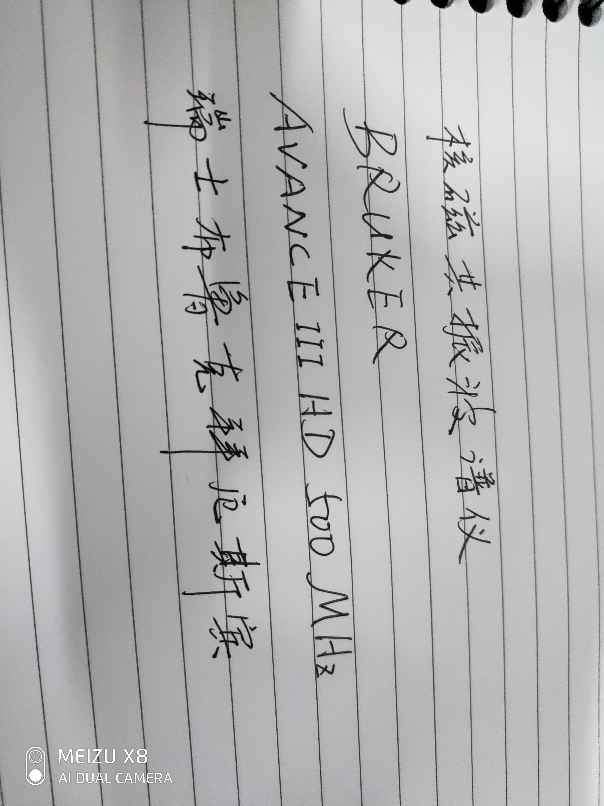 核磁共振波谱仪
BRUKER
AVANCE III HD 500 MHz
瑞士布鲁克拜厄斯宾
MEIZU X8
AI DUAL CAMERA